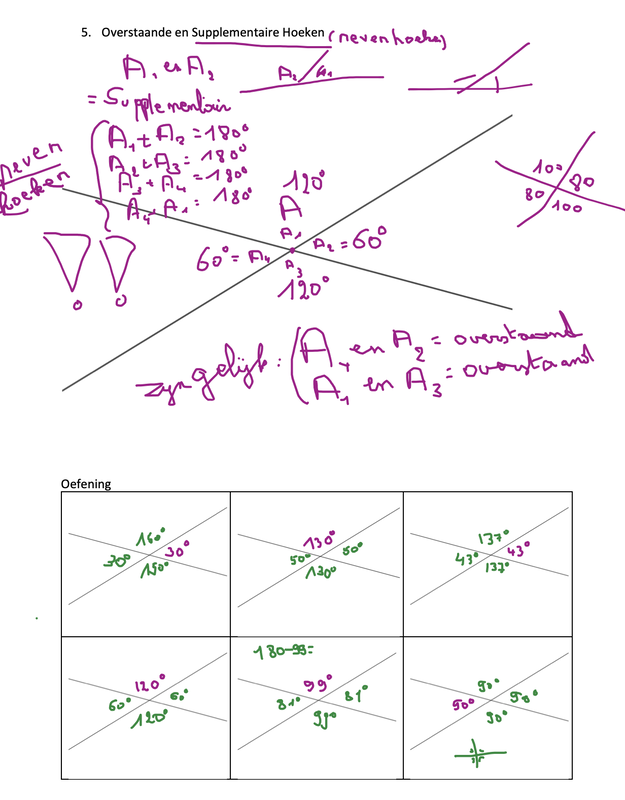 5. Overstaande en Supplementaire Hoeken (nevenhoeken)
A₁ en A₂
A₂ A₁
= Supplementair
A₁ + A₂ = 180°
A₂ + A₃ = 180°
A₃ + A₄ = 180°
A₄ + A₁ = 180°
neven
hoeken
120°
A
A₁
A₂ = 60°
60° = A₄
A₃
120°
100 80
80 100
zijn gelijk: A₄ en A₂ = overstaand
A₁ en A₃ = overstaand
Oefening
160°
30° 30°
150°
130°
50° 50°
130°
137°
43° 43°
137°
120°
60° 60°
120°
180-99=
99°
81° 81°
99°
90°
90° 90°
90°